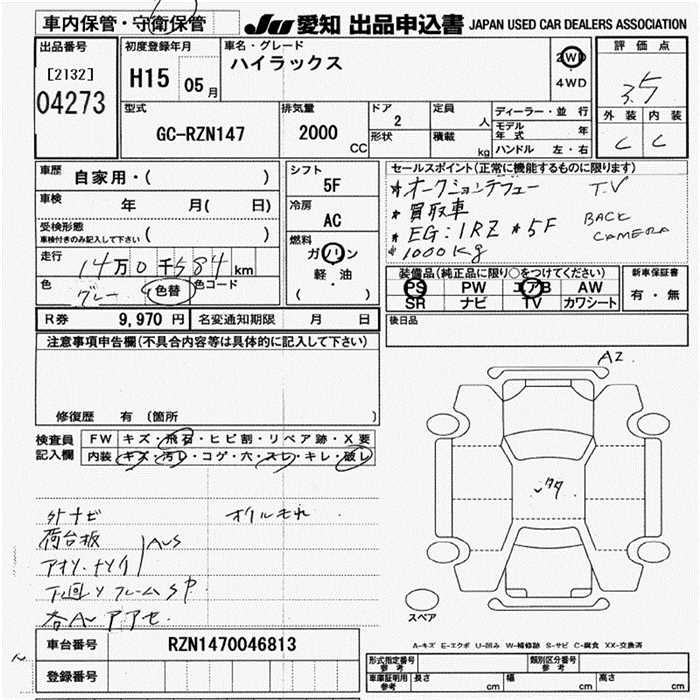 車内保管・守衛保管
JU 愛知 出品申込書 JAPAN USED CAR DEALERS ASSOCIATION
出品番号
[2132]
04273
初度登録年月
H15 05月
車名・グレード
ハイラックス
2WD
4WD
評価点
3.5
外装 内装
C C
型式
GC-RZN147
排気量
2000 CC
ドア
2
形状
定員
人
積載
kg
ディーラー・並行
モデル年式 年
ハンドル 左・右
車歴
自家用・( )
車検 年 月( 日)
受検形態
車検付きのみ記入して下さい ( )
走行
14万0千584km
色
グレー
色替
色コード
シフト
5F
冷房
AC
燃料
ガソリン
軽・油
( )
セールスポイント(正常に機能するものに限ります)
* オークションデビュー T.V
* 買取車 BACK
* EG:1RZ * 5F CAMERA
* 1000kg
装備品(純正品に限り○をつけてください)
PS PW エアB AW
SR ナビ TV カワシート
新車保証書
有・無
R券 9,970円
名変通知期限 月 日
後日品
注意事項申告欄(不具合内容等は具体的に記入して下さい)
修復歴 有 (箇所 )
検査員記入欄
FW キズ・飛石・ヒビ割・リペア跡・X要
内装 キズ・汚レ・コゲ・穴・スレ・キレ・破レ
外ナビ オイルもれ
荷台板
下回サ フレームSP
A2
スペア
A-キズ E-エクボ U-凹み W-補修跡 S-サビ C-腐食 XX-交換済
車台番号 RZN1470046813
登録番号
形式指定番号 参考
類別区分番号 参考
車庫証明用 参考
長さ cm
幅 cm
高さ cm